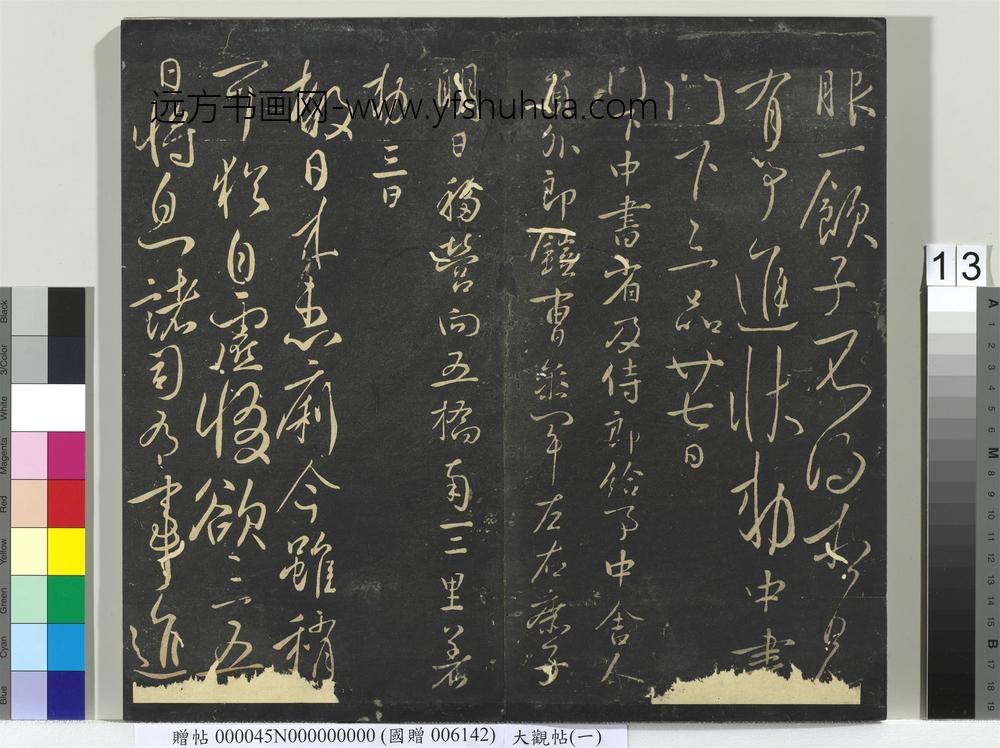 眼一顧子不得相見
有事進狀勅中書
門下三品廿七日
門下中書省及侍郎給事中舍人
員外郎鎧曹無問左右庶子
明日移營向五橋南三二里著
勅三日
敕日來患痢今雖稍
可猶自虛惙欲三五
日將息諸司有事進
远方书画网-www.yfshuhua.com
贈帖 000045N000000000 (國贈 006142) 大觀帖(一)
13
Black
3/Color
White
Magenta
Red
Yellow
Green
Cyan
Blue
A
1
2
3
4
5
6
M
8
9
10
11
12
13
14
15
B
17
18
19